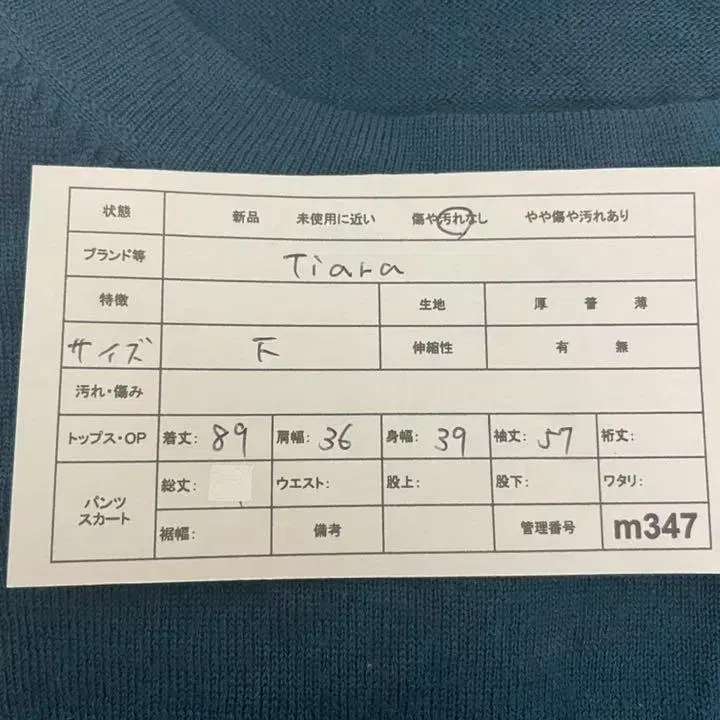 状態 新品 未使用に近い 傷や汚れなし やや傷や汚れあり
ブランド等 Tiara
特徴 生地 厚 普 薄
サイズ F 伸縮性 有 無
汚れ・傷み
トップス・OP 着丈: 89 肩幅: 36 身幅: 39 袖丈: 57 裄丈:
パンツ スカート 総丈: ウエスト: 股上: 股下: ワタリ:
裾幅: 備考 管理番号 m347